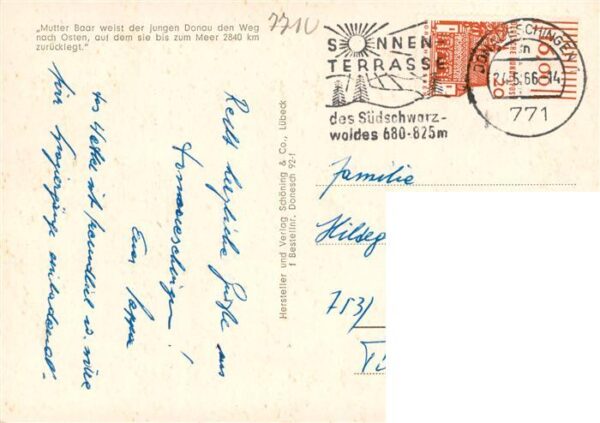 „Mutter Baar weist der jungen Donau den Weg
nach Osten, auf dem sie bis zum Meer 2840 km
zurücklegt.“
7710
SONNEN
TERRASSE
des Südschwarz-
waldes 680-825m
DONAUESCHINGEN
24.5.66-14
771
20
Hersteller und Verlag Schöning & Co., Lübeck
f Bestellnr. Donesch 92
Recht herzliche Grüße aus
Donaueschingen!
Euer Pappa
das Wetter ist freundlich u. wäre
für Spaziergänge einladend.
Familie
Hilseg
753/